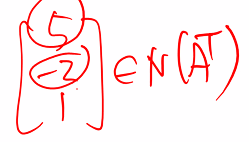 5
-2
1
∈ N(Aᵀ)